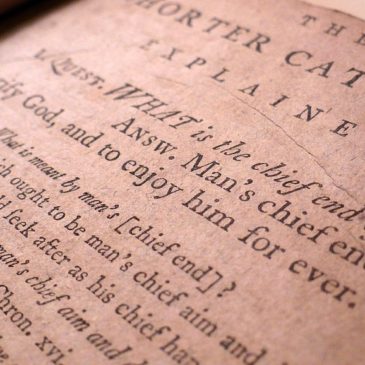 THE
HORTER CAT
EXPLAINE
1. QUEST. WHAT is the chief end
Answ. Man's chief end
rify God, and to enjoy him for ever.
What is meant by man's [chief end]?
ich ought to be man's chief aim and
ld seek after as his chief hap
man's chief aim and
Chron. xvi.